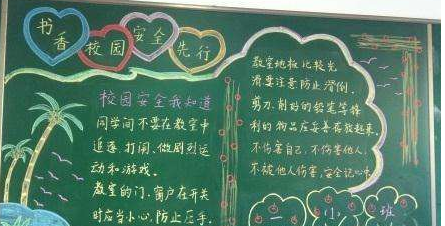 书香 校园 安全 先行
校园安全我知道
同学间不要在教室中
追逐、打闹、做剧烈运
动和游戏。
教室的门、窗户在开关
时应当小心,防止压手。
教室地板比较光
滑要注意防止滑倒。
剪刀、削好的铅笔等锋
利的物品应妥善存放起来,
不伤害自己,不伤害他人,
不被他人伤害,安全记心中
一 门 班